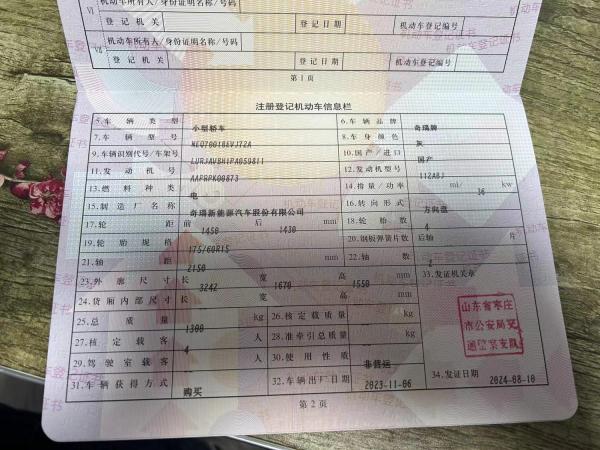 机动车所有人/身份证明名称/号码
Ⅵ
登记机关 登记日期 机动车登记编号
机动车所有人/身份证明名称/号码
Ⅶ
登记机关 登记日期 机动车登记编号
第1页
注册登记机动车信息栏
5.车辆类型 小型轿车 6.车辆品牌 奇瑞牌
7.车辆型号 NEQ7001BEVJ72A 8.车身颜色 灰
9.车辆识别代号/车架号 LURJAVBH1PA059811 10.国产/进口 国产
11.发动机号 AAPBPK00873 12.发动机型号
13.燃料种类 电 14.排量/功率 ml/ 36 kw
15.制造厂名称 奇瑞新能源汽车股份有限公司 16.转向形式 方向盘
17.轮距 前 1450 后 1430 mm 18.轮胎数 4
19.轮胎规格 175/60R15 20.钢板弹簧片数 后轴 片
21.轴距 2150 mm 22.轴数 2
23.外廓尺寸 长 3242 宽 1670 高 1550 mm 33.发证机关章
24.货厢内部尺寸 长 宽 高 mm
25.总质量 1300 kg 26.核定载质量 kg
27.核定载客 4 人 28.准牵引总质量 kg
29.驾驶室载客 人 30.使用性质 非营运
31.车辆获得方式 购买 32.车辆出厂日期 2023-11-06 34.发证日期 2024-08-10
山东省枣庄
市公安局交
通警察支队
第2页